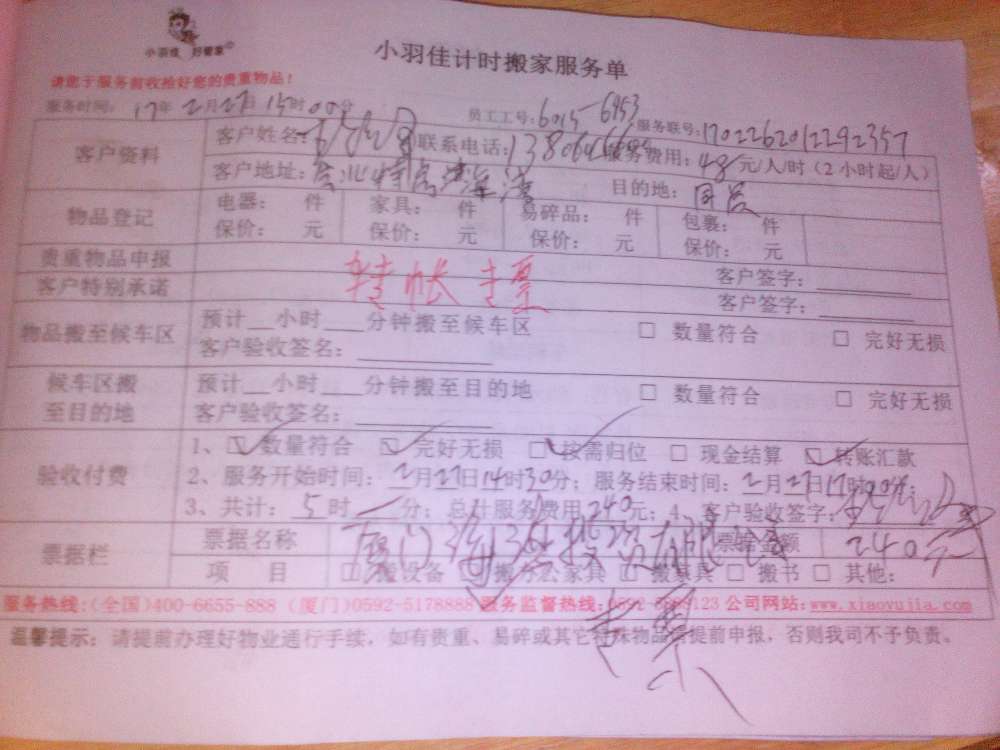 小羽佳 好管家
小羽佳计时搬家服务单
请您于服务前收拾好您的贵重物品！
服务时间：17年2月27日15时00分 员工工号：6015-6953 服务联号：1702262012292357
客户资料 客户姓名： 联系电话： 服务费用：48元/人/时（2小时起/人）
客户地址： 目的地：
物品登记 电器： 件 家具： 件 易碎品： 件 包裹： 件
保价： 元 保价： 元 保价： 元 保价： 元
贵重物品申报 客户签字：
转帐 专票
客户特别承诺 客户签字：
物品搬至候车区 预计__小时___分钟搬至候车区 □ 数量符合 □ 完好无损
客户验收签名：
候车区搬至目的地 预计__小时___分钟搬至目的地 □ 数量符合 □ 完好无损
客户验收签名：
验收付费 1、☑ 数量符合 ☑ 完好无损 ☑ 按需归位 □ 现金结算 ☑ 转账汇款
2、服务开始时间：2月27日14时30分；服务结束时间：2月27日17时00分；
3、共计：5时 分；总计服务费用240元；4、客户验收签字：
票据栏 票据名称 厦门 有限 票据金额 240元
项 目 □ 搬设备 搬办公家具 □ 搬家具 □ 搬书 □ 其他：
服务热线：(全国)400-6655-888 (厦门)0592-5178888 服务监督热线： 公司网站：www.xiaoyujia.com
专票
温馨提示：请提前办理好物业通行手续，如有贵重、易碎或其它特殊物品请提前申报，否则我司不予负责。